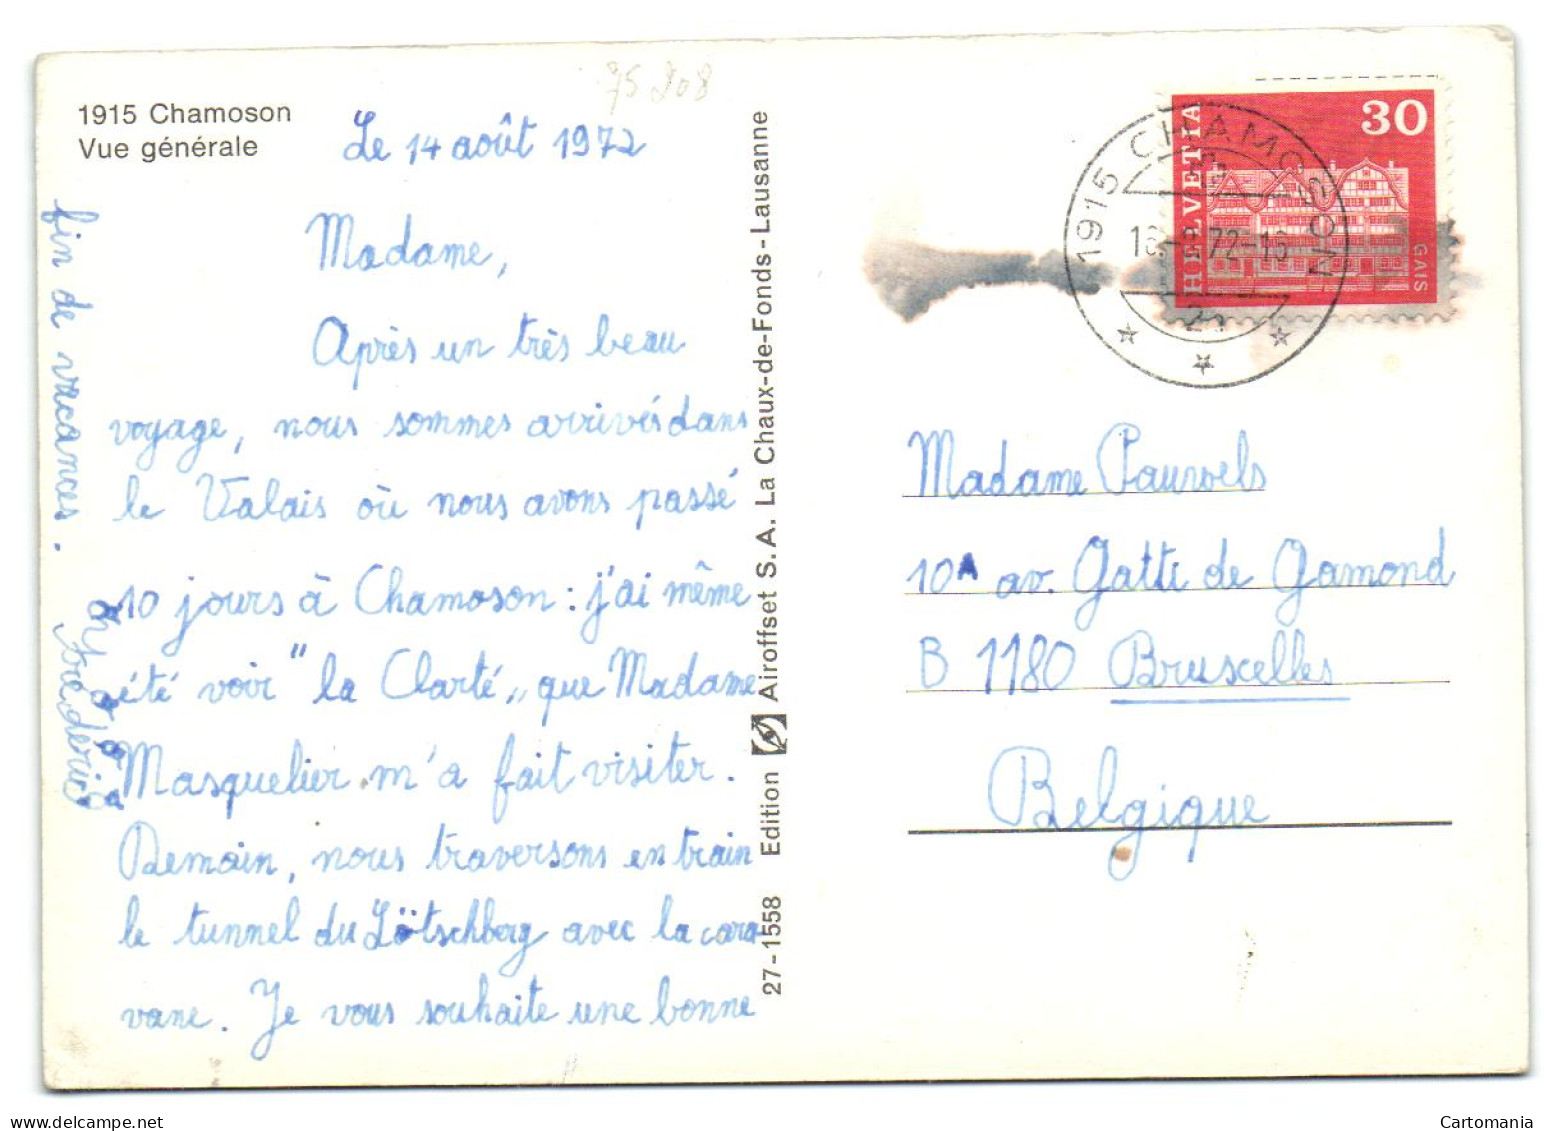 1915 Chamoson
Vue générale
75 208
Le 14 août 1972
Madame,
Après un très beau
voyage, nous sommes arrivés dans
le Valais où nous avons passé
10 jours à Chamoson : j'ai même
été voir "la Clarté" que Madame
Masquelier m'a fait visiter.
Demain, nous traversons en train
le tunnel du Lötschberg avec la cara-
vane. Je vous souhaite une bonne
fin de vacances.
Frédéric
27-1558 Edition Airoffset S.A. La Chaux-de-Fonds-Lausanne
HELVETIA
30
GAIS
1915 CHAMOSON
72-16
Madame Pauwels
10A av. Gatti de Gamond
B 1180 Bruxelles
Belgique
Cartomania